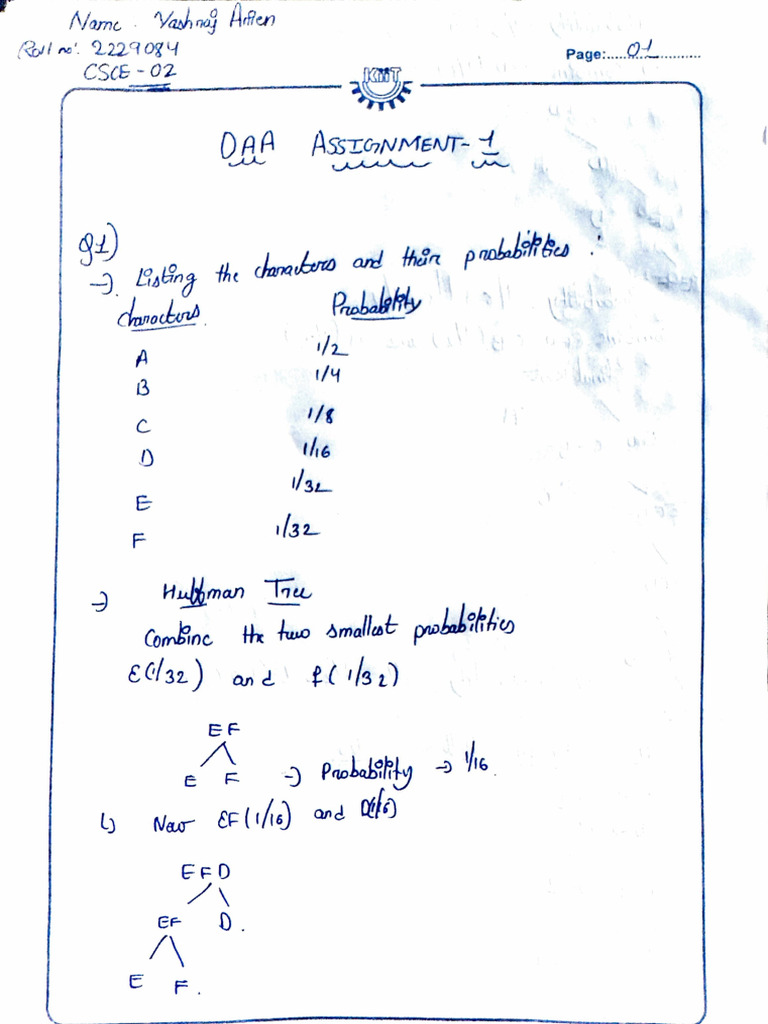 Name. Yashraj
Roll no: 2229084
CSCE-02
Page:....01............
KIIT
DAA ASSIGNMENT-1
Q1)
→ Listing the characters and their probabilities :
characters Probability
A 1/2
B 1/4
C 1/8
D 1/16
E 1/32
F 1/32
→ Huffman Tree
Combine the two smallest probabilities
E(1/32) and f(1/32)
EF
E F → Probability → 1/16
↳ Now EF(1/16) and D(1/16)
EFD
EF D.
E F.